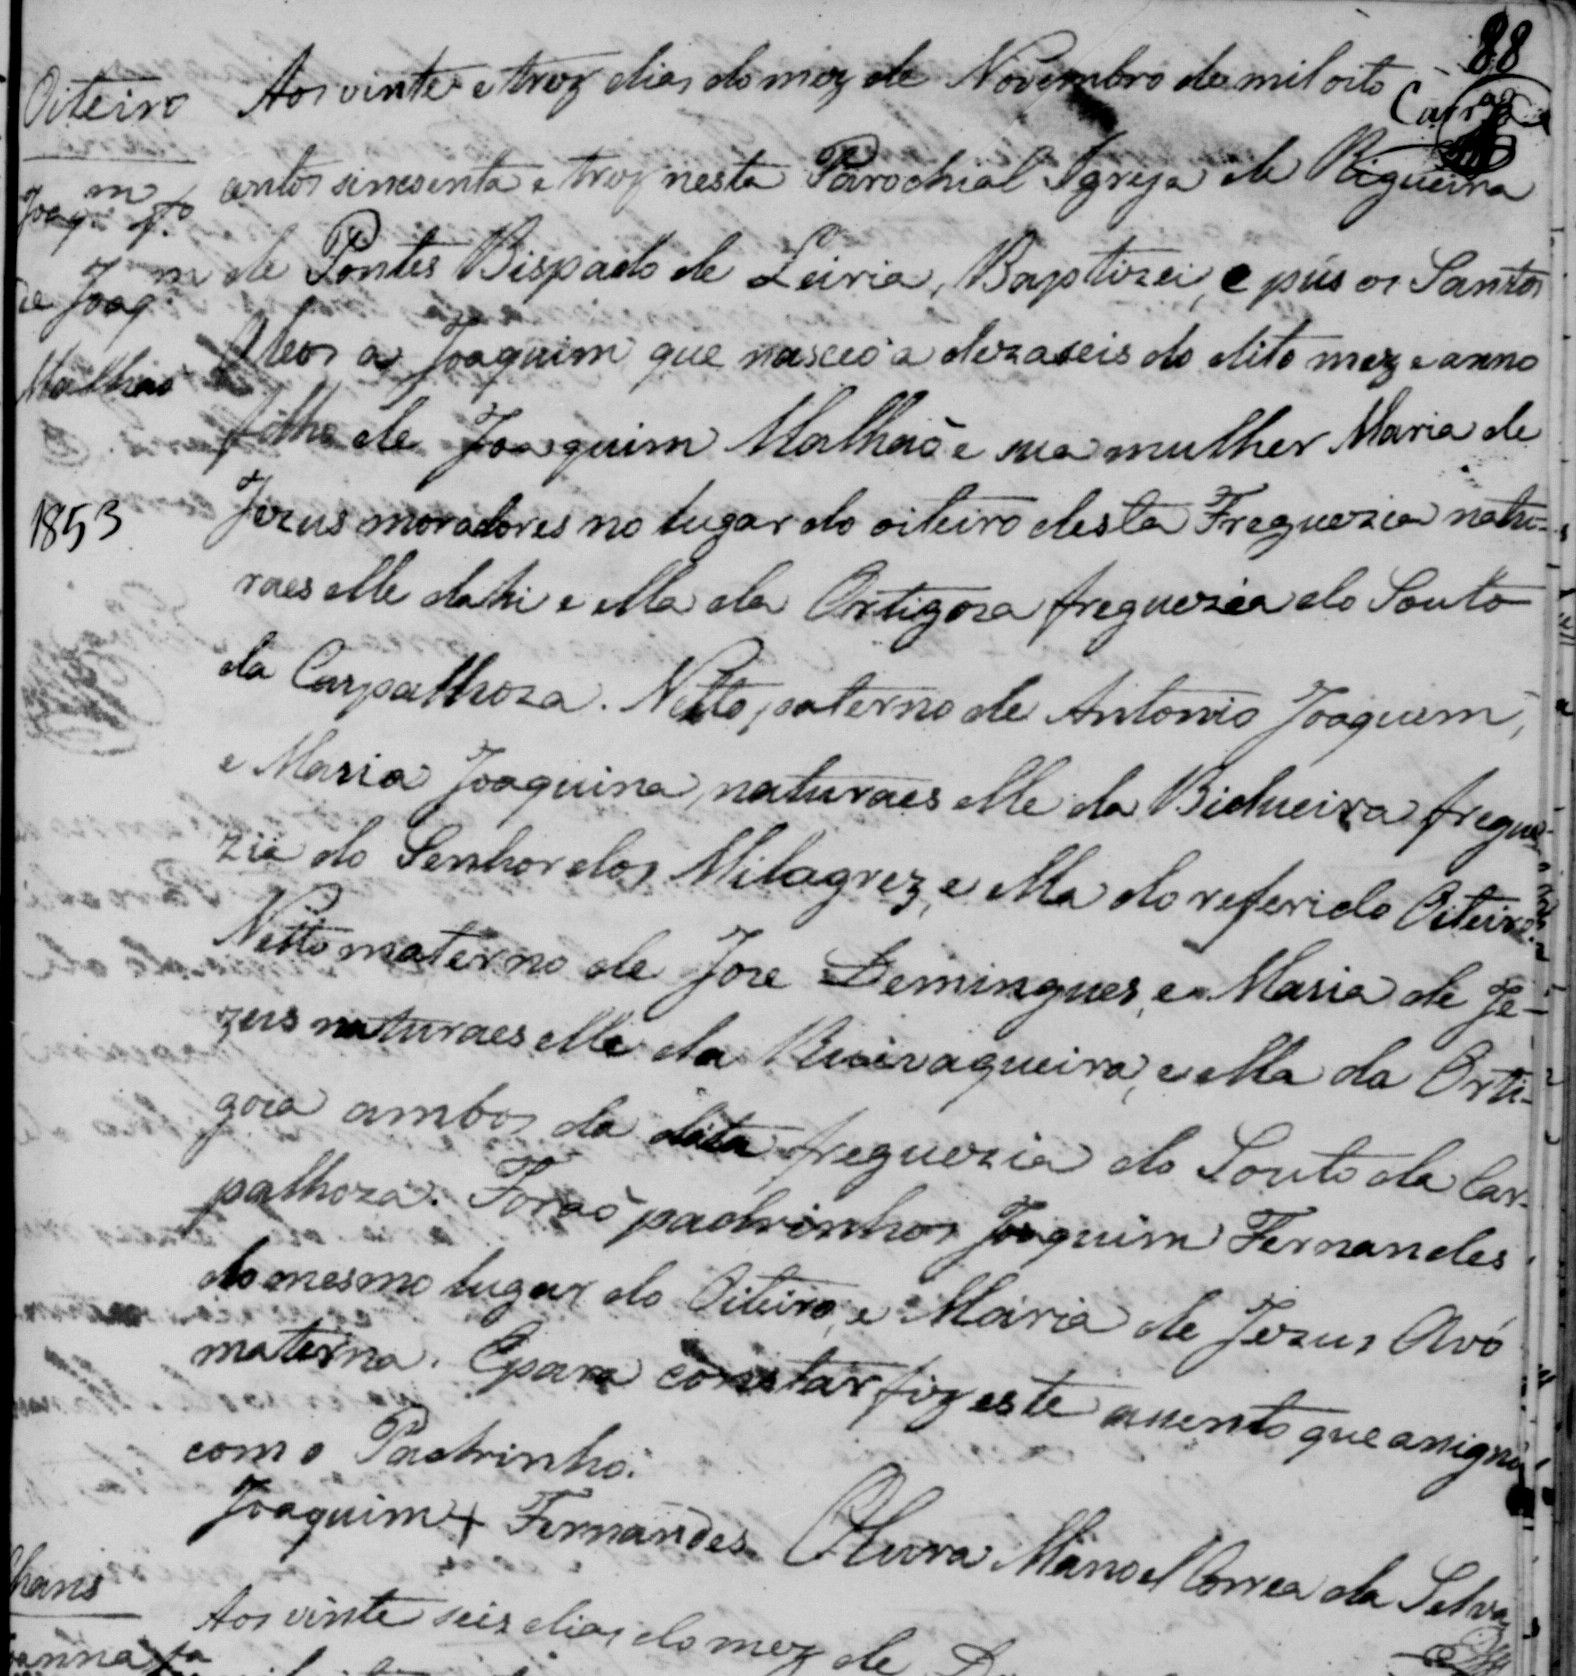 88
Carr.ª
Oiteiro
Joaq.m f.º
de Joaq.m
Malhaõ
1853
Aos vinte e trez dias do mez de Novembro de mil oito
centos sincoenta e trez nesta Parochial Igreja de Rigueira
de Pontes Bispado de Leiria, Baptizei, e pús os Santos
Oleos a Joaquim que nasceo a dezaseis do dito mez e anno
filho de Joaquim Malhaõ e sua mulher Maria de
Jezus moradores no lugar do oiteiro desta Freguezia natu-
raes elle dahi e ella da Ortigoza freguezia do Souto
da Carpalhoza. Netto paterno de Antonio Joaquim,
e Maria Joaquina, naturaes elle da Bidueira fregue-
zia do Senhor dos Milagrez, e ella do referido Oiteiro.
Netto materno de Joze Domingues, e Maria de Je-
zus naturaes elle da Ruivaqueira, e ella da Orti-
goza ambos da dita freguezia do Souto da Car-
palhoza. Foraõ padrinhos Joaquim Fernandes
do mesmo lugar do Oiteiro, e Maria de Jezus Avó
materna. E para constar fiz este assento que assignei
com o Padrinho.
Joaquim + Fernandes O Cura Manoel Correa da Selva
Chans
Joanna f.ª
Aos vinte seis dias do mez de